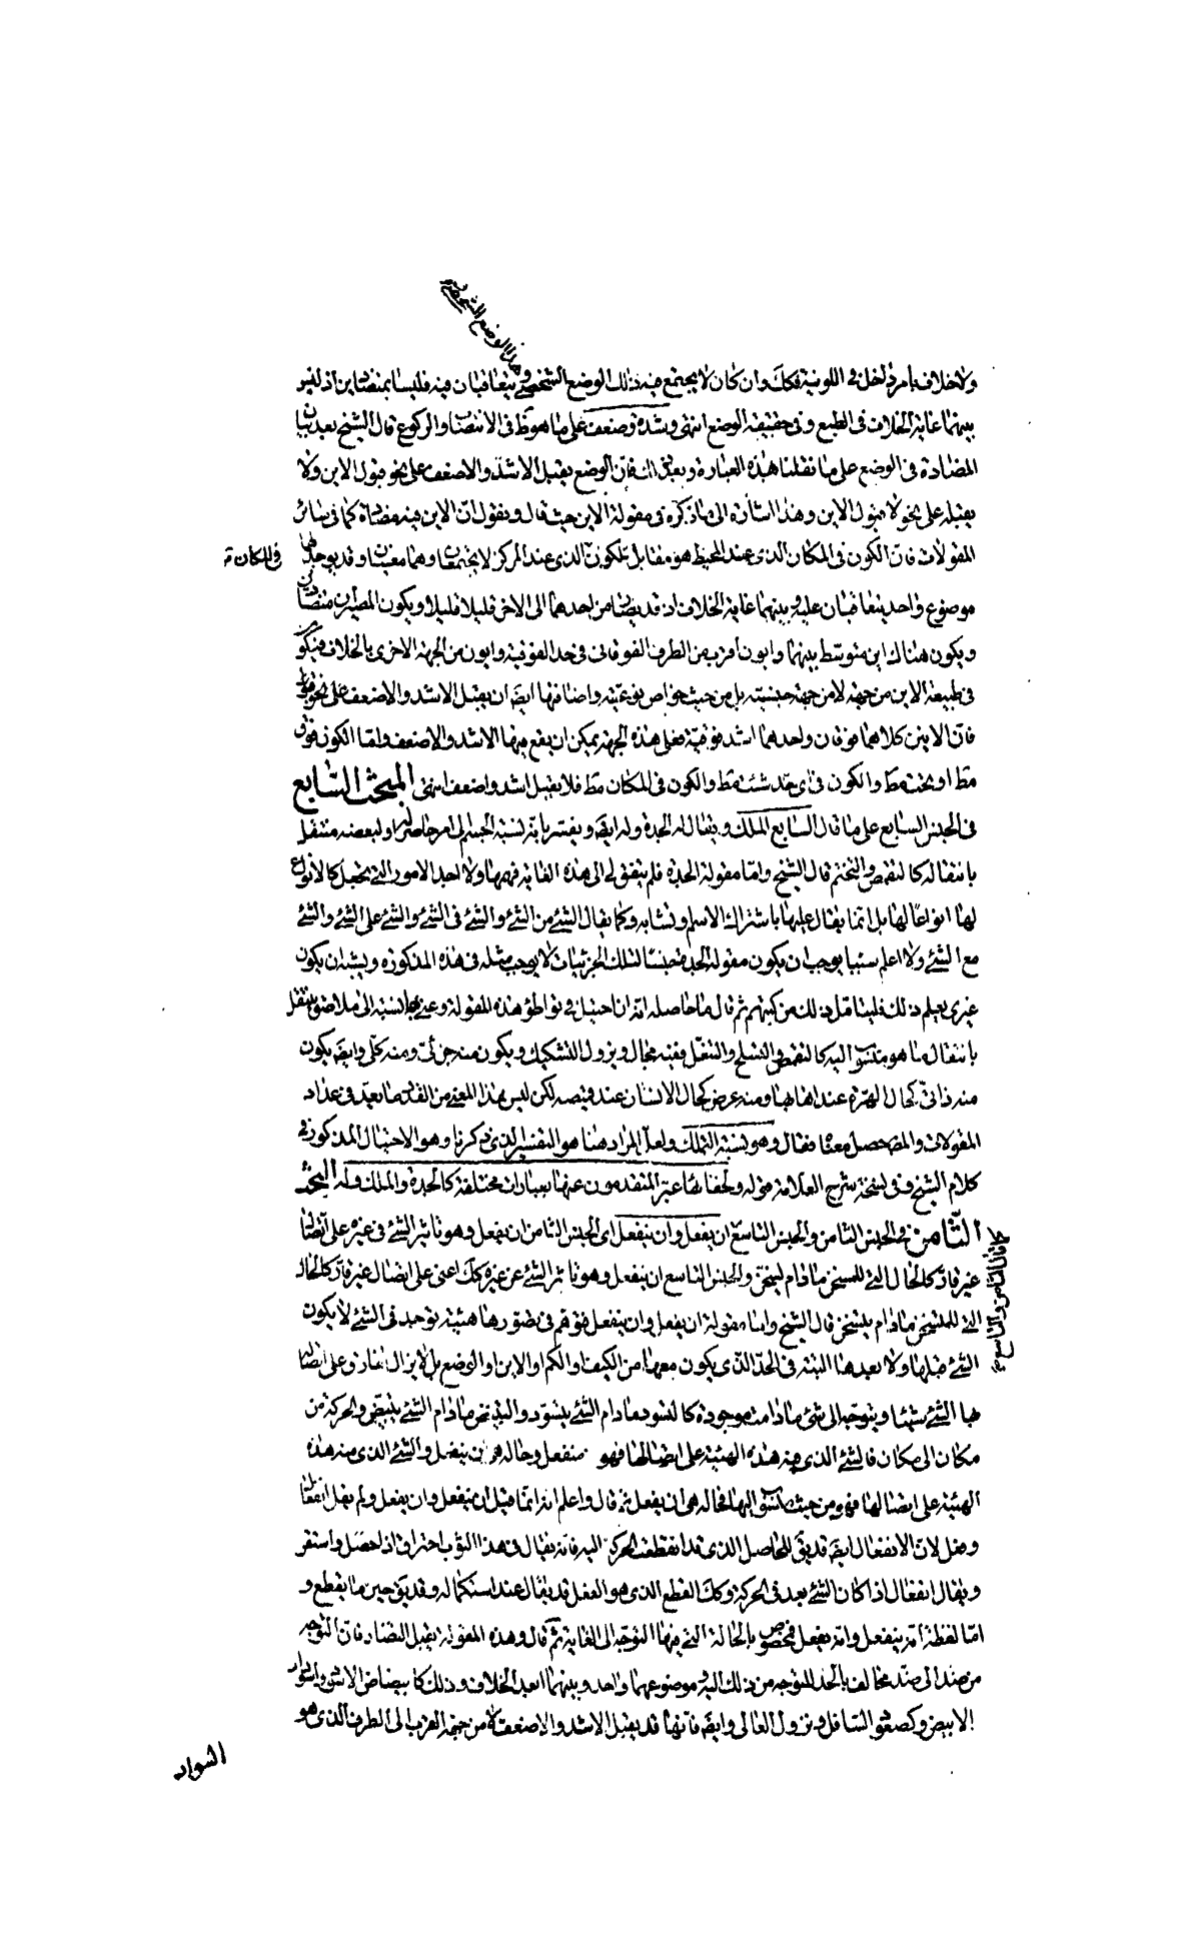 وهذا الوضع الشخصى
ولا خلاف بامر داخل فى اللونية فكك وان كان لا يجتمع فيه ذلك الوضع الشخصى ويتعاقبان فيه فليسا بمتضادين اذ ليس
بينهما غاية الخلاف فى الطبع وفى حقيقة الوضع انتهى وشدة وضعف على ما هو ظ فى الانتصاب والركوع قال الشيخ بعد بيان
المضادة فى الوضع على ما نقلنا هذه العبارة فان الوضع يقبل الاشد والاضعف على نحو قبول الاين ولا
يقبله على نحو لا قبول الاين وهذا اشارة الى ما ذكره فى مقولة الاين حيث قال ونقول ان الاين فيه مضادة كما فى سائر
المقولات فان الكون فى المكان الذى عند المحيط هو مقابل للكون الذى عند المركز لا يجتمعان وهما معنيان وقد يوجد لهما
فى المكان
موضوع واحد يتعاقبان عليه وبينهما غاية الخلاف اذ قد من احدهما الى الاخر قليلا قليلا ويكون متضادين
ويكون هناك اين متوسط بينهما وايون اقرب من الطرف الفوقانى فى حد الفوقية وايون من الجهة الاخرى بالخلاف فيكون
فى طبيعة الاين من جهة لا من جهة جنسيته بل من حيث خواص نوعيته واضافتها ايضا ان يقبل الاشد والاضعف على نحو
فان الاينين كلاهما فوقان واحدهما اشد فوقية فعلى هذه الجهة يمكن ان يقع فيها الاشد والاضعف واما الكون فوق
فقط او تحت فقط والكون فى اى حد شئت فقط والكون فى المكان فقط فلا يقبل اشد واضعف انتهى المبحث السابع
فى الجنس السابع على ما قال السابع الملك ويقال له الجدة وله ايضا ويفسر بانه نسبة الجسم الى امر حاصر له او لبعضه منتقل
بانتقاله كالتقمص والتختم قال الشيخ واما مقولة الجدة فلم يتفق لى الى هذه الغاية فهمها ولا احد الامور التى تجعل كالانواع
لها انواعا لها بل انما يقال عليها باشتراك الاسم وتشابه وكما يقال الشئ من الشئ والشئ فى الشئ والشئ على الشئ والشئ
مع الشئ ولا اعلم سببا يوجب ان يكون مقولة الجدة جنسا لتلك الجزئيات لا يوجب مثله فى هذه المذكورة ويشبه ان يكون
غيرى يعلم ذلك فليتامل ذلك من كتبهم ثم قال ما حاصله انه ان احتيل فى تواطؤ هذه المقولة وعنى بها نسبة الى ملاصق ينتقل
بانتقال ما هو منسوب اليه كالتقمص والتسلح والتنعل ففيه مجال ويزول التشكيك ويكون منه جزئى ومنه كلى وايضا يكون
منه ذاتى كحال الهرة عند اهابها ومنه عرضى كحال الانسان عند قميصه لكن ليس بهذا المعنى من القدر ما يعد فى عداد
المقولات فقال وهو نسبة التملك ولعل المراد هنا هو التفسير الذى ذكرنا وهو الاحتيال المذكور فى
كلام الشيخ وفى نسخة شرح العلامة قوله ولخفائها عبر المتقدمون عنها بعبارات مختلفة كالجدة والملك وله البحث
الثامن فى الجنس الثامن والجنس التاسع ان يفعل وان ينفعل اى الجنس الثامن ان يفعل وهو تاثير الشئ فى غيره على اتصال
قال الثامن والتاسع
غير قار كالحال التى للمسخن ما دام يسخن والجنس التاسع ان ينفعل وهو تاثر الشئ عن غيره كك اعنى على اتصال غير قار كالحال
التى للمتسخن ما دام يتسخن قال الشيخ واما مقولة ان يفعل وان ينفعل فيتوهم فى تصورها هيئة توجد فى الشئ لا يكون
الشئ قبلها ولا بعدها البتة فى الحد الذى يكون معها من الكيف او الكم او الاين او الوضع بل لا يزال يفارق على اتصال
بها الشئ شيئا ويتوجه الى شئ ما دامت موجودة كالتسود ما دام الشئ يتسود والتبيض ما دام الشئ يتبيض والحركة من
مكان الى مكان فالشئ الذى فيه هذه الهيئة على اتصالها فهو منفعل وحاله هو ان ينفعل والشئ الذى منه هذه
الهيئة على اتصالها فهو من حيث هو منسوب اليها فحاله هى ان يفعل ثم قال واعلم انه انما قيل ان ينفعل وان يفعل ولم يقل انفعال
وفعل لان الانفعال ايضا قد يق للحاصل الذى قد انقطعت الحركة اليه فانه يقال فى هذا الثوب احتراق اذا حصل واستقر
ويقال انفعال اذا كان الشئ بعد فى الحركة وكك القطع الذى هو الفعل قد يقال عند استكماله وقد يق حين ما يقطع و
اما لفظة انه ينفعل وانه يفعل فمخصوص بالحالة التى فيها التوجه الى الغاية ثم قال وهذه المقولة يقبل التضاد فان التوجه
من ضد الى ضد مخالف بالحد للتوجه من ذلك اليه وموضوعهما واحد وبينهما ابعد الخلاف وذلك كابيضاض الاسود واسوداد
الابيض وكصعود السافل ونزول العالى وايضا فانها قد يقبل الاشد والاضعف لا من جهة القرب الى الطرف الذى هو
السواد